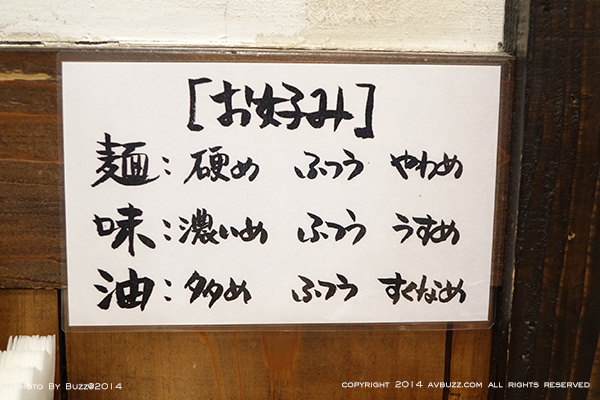 [お好み]
麺:硬め ふつう やわめ
味:濃いめ ふつう うすめ
油:多め ふつう すくなめ
PHOTO BY BUZZ@2014
COPYRIGHT 2014 AVBUZZ.COM ALL RIGHTS RESERVED